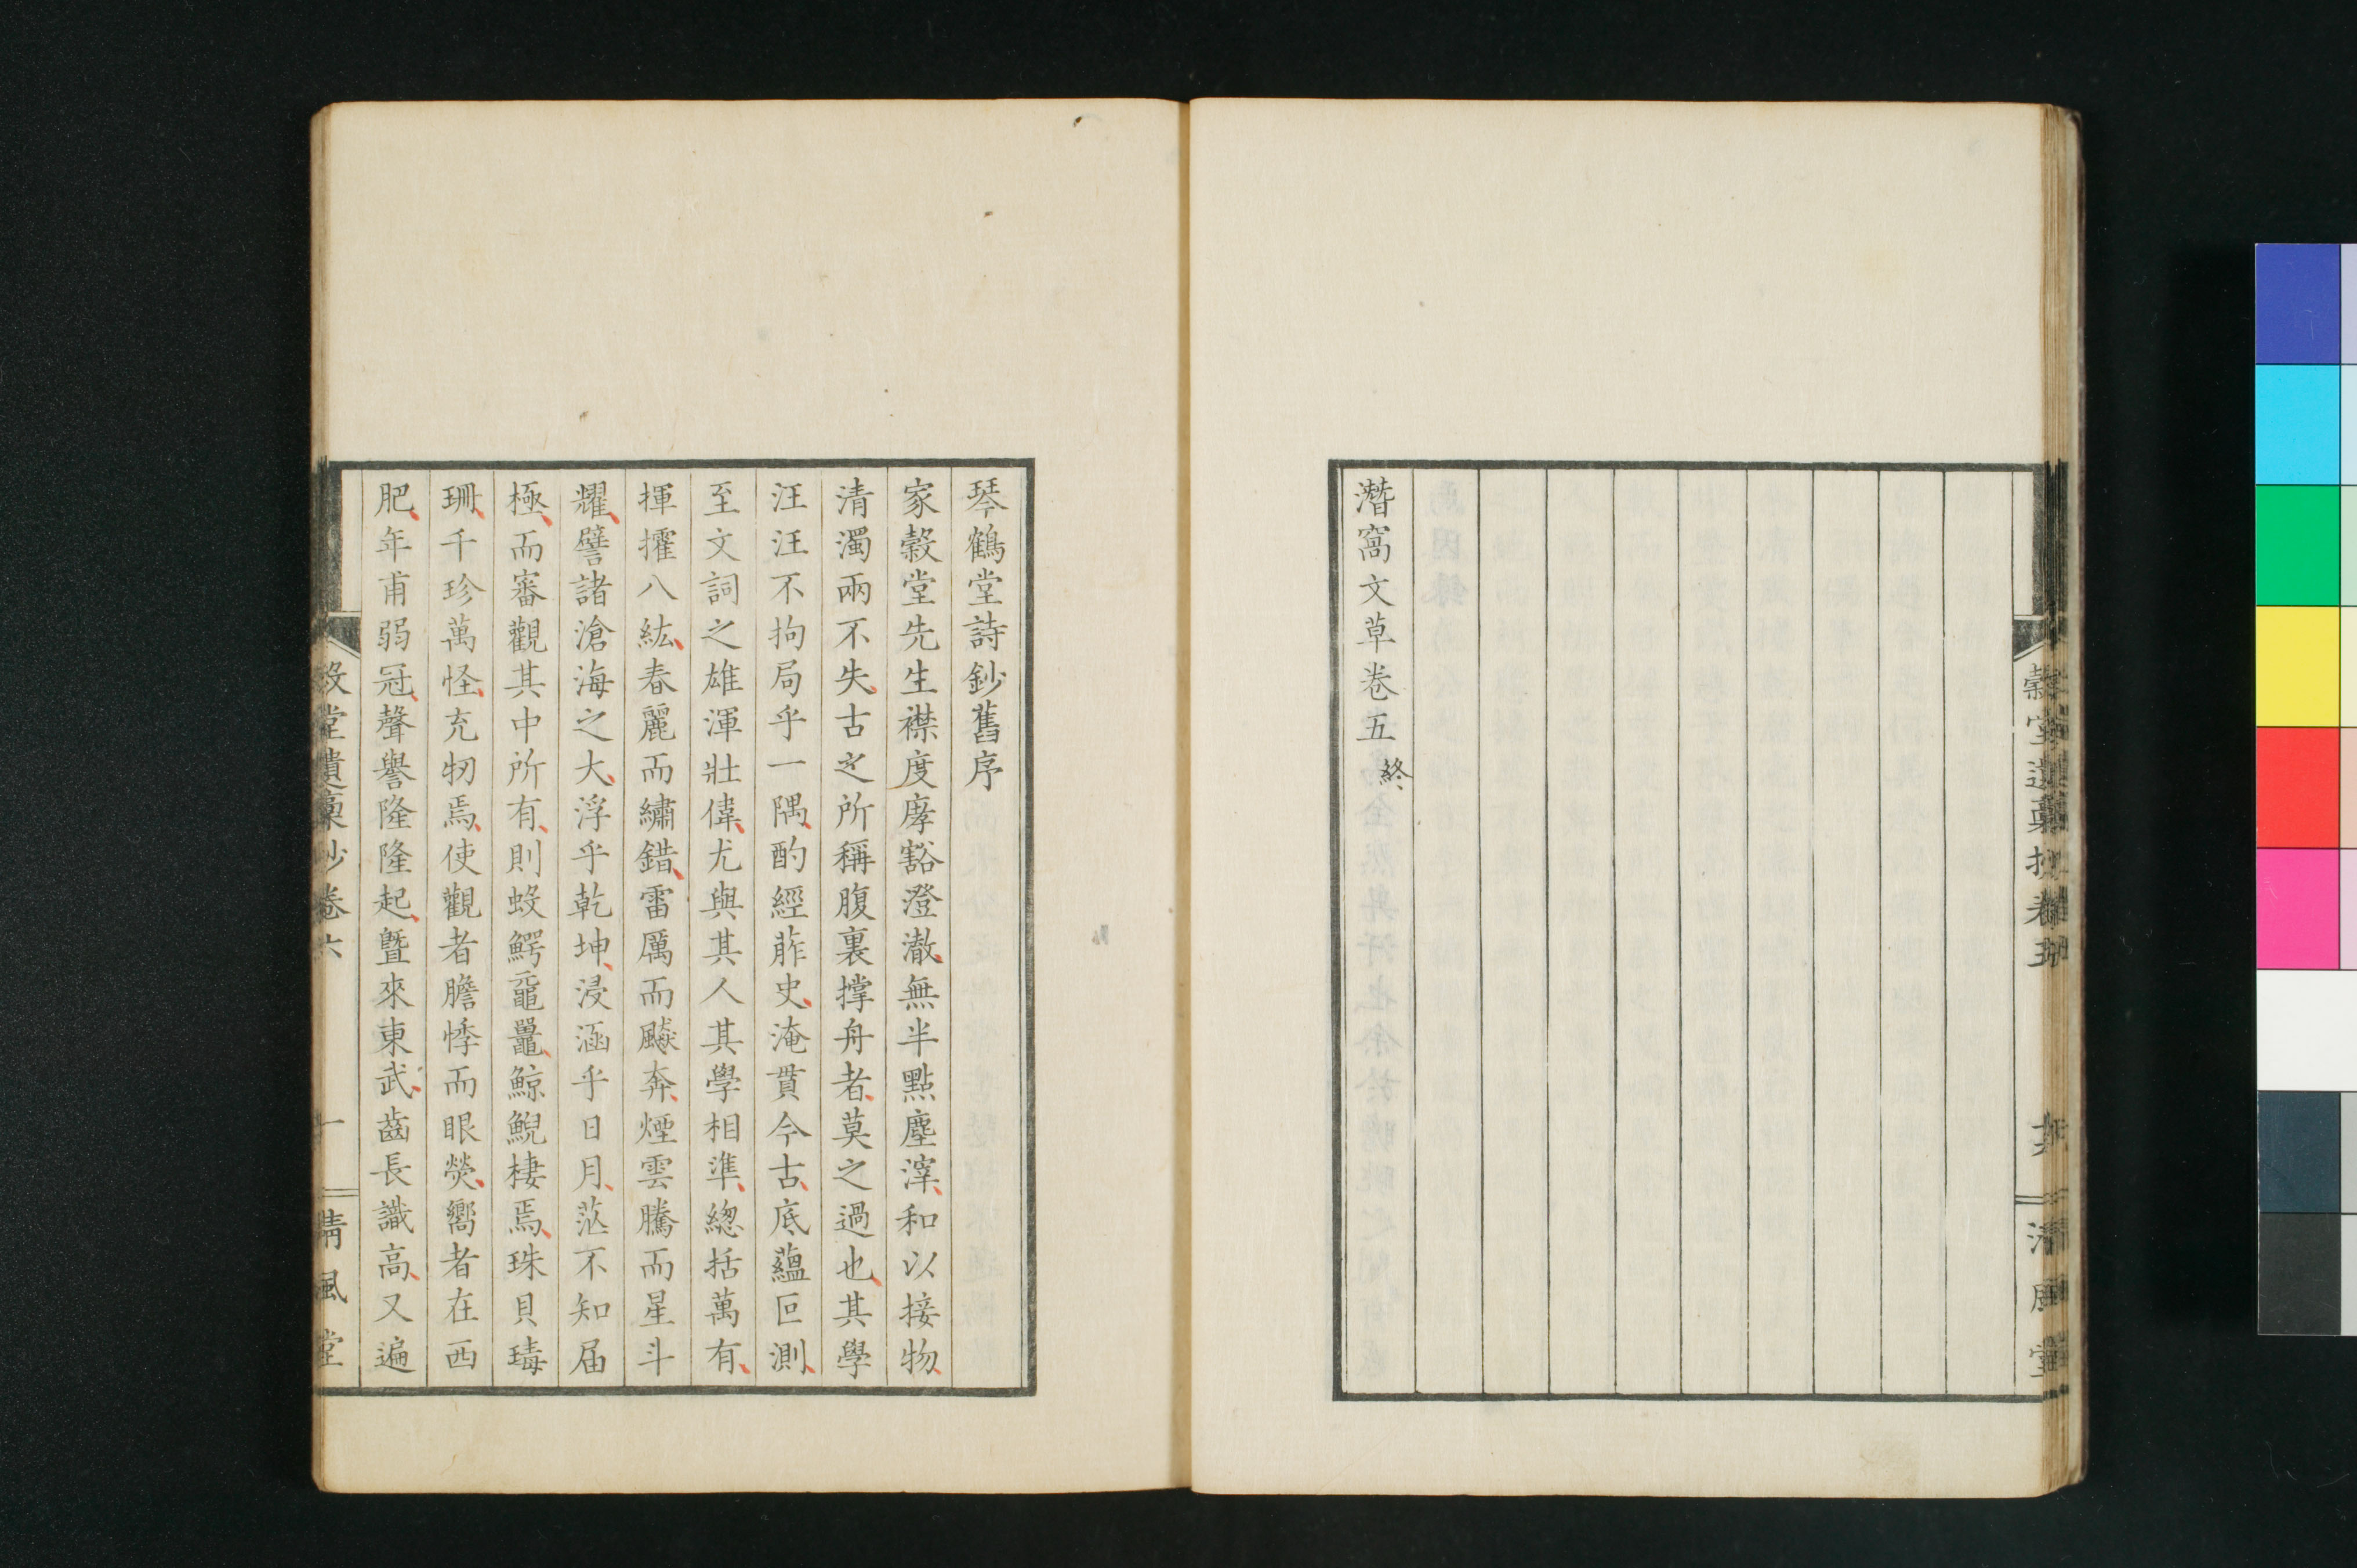 潛窩文草卷五終
琴鶴堂詩鈔舊序
家穀堂先生襟度庨豁澄澈無半點塵滓和以接物
清濁兩不失古之所稱腹裏撑舟者莫之過也其學
汪汪不拘局乎一隅酌經葄史淹貫今古底蘊叵測
至文詞之雄渾壯偉尤與其人其學相準緫括萬有
揮擢八紘春麗而繡錯雷厲而飈奔煙雲騰而星斗
耀譬諸滄海之大浮乎乾坤浸涵乎日月茫不知届
極而審觀其中所有則蛟鰐黿鼉鯨鯢棲焉珠貝瑇
珊千珍萬怪充牣焉使觀者膽悸而眼熒嚮者在西
肥年甫弱冠聲譽隆隆起曁來東武齒長識高又遍
堂遺稾鈔卷六 一 清風堂